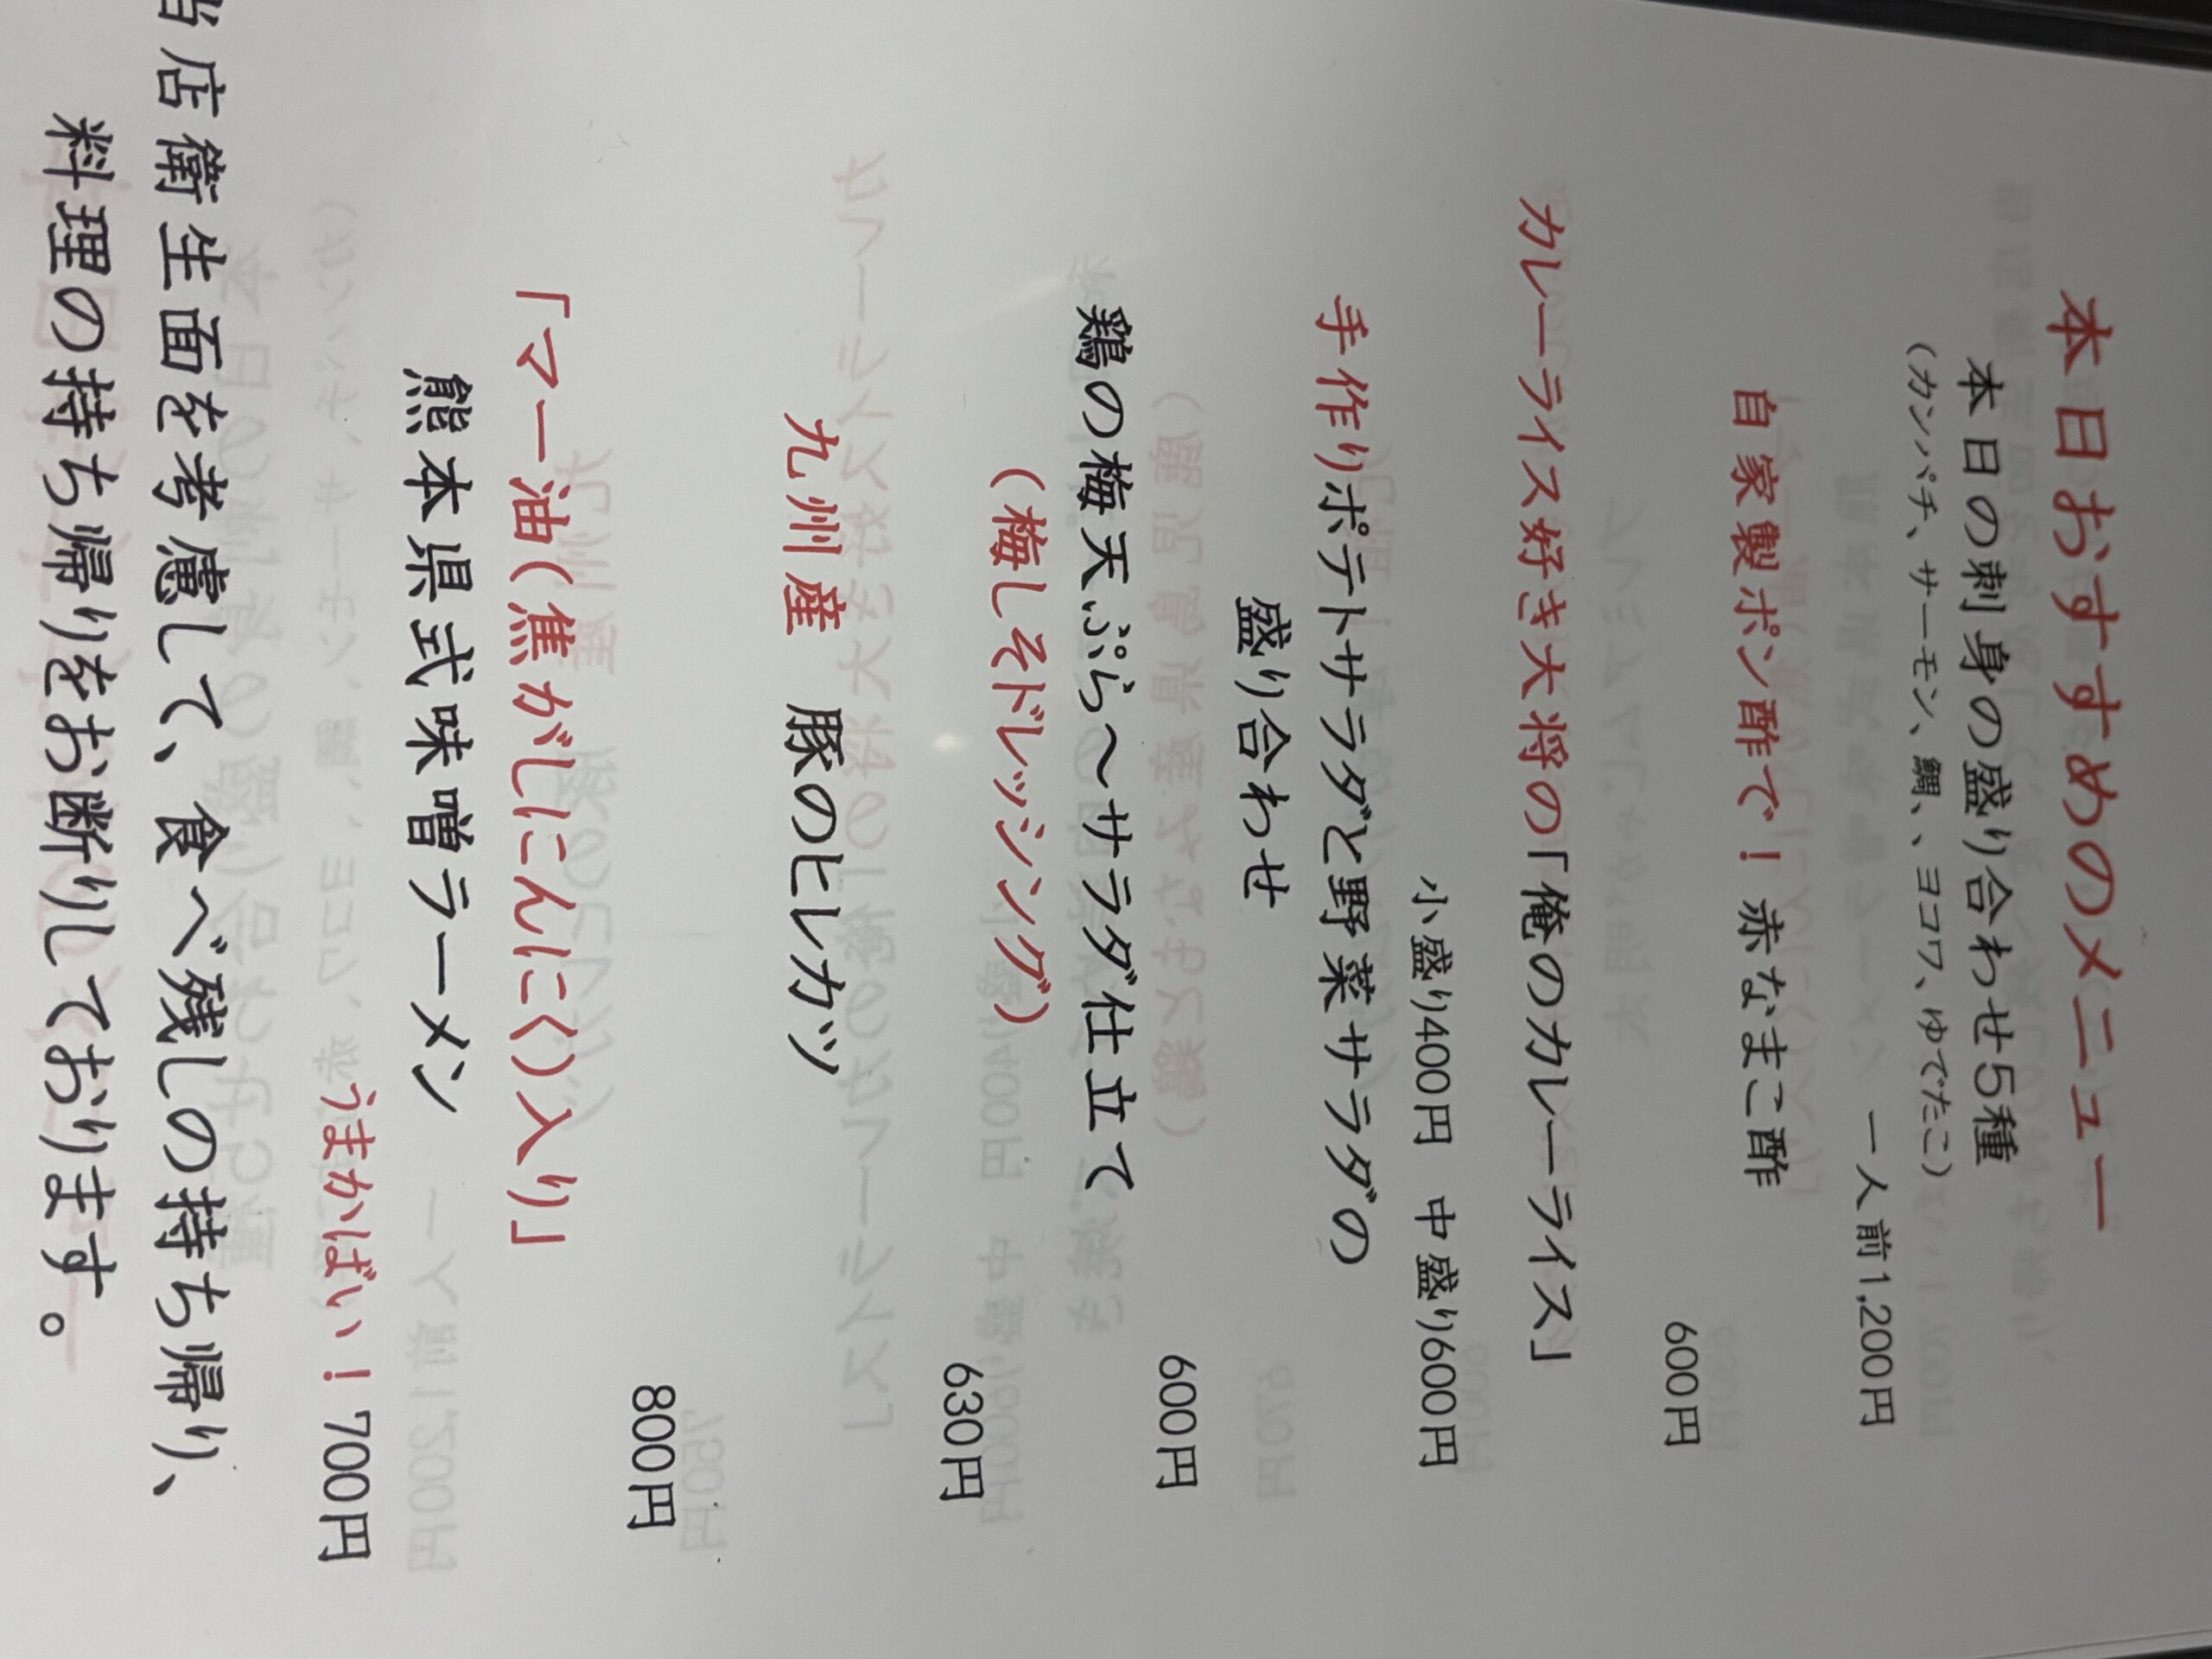 本日おすすめのメニュー
本日の刺身の盛り合わせ5種
(カンパチ、サーモン、鯛、、ヨコワ、ゆでたこ)
一人前1,200円
自家製ポン酢で！赤なまこ酢
600円
カレーライス好き大将の「俺のカレーライス」
小盛り400円　中盛り600円
手作りポテトサラダと野菜サラダの
盛り合わせ
600円
鶏の梅天ぷら～サラダ仕立て
(梅しそドレッシング)
630円
九州産　豚のヒレカツ
800円
「マー油(焦がしにんにく)入り」
熊本県式味噌ラーメン
うまかばい！700円
当店衛生面を考慮して、食べ残しの持ち帰り、
料理の持ち帰りをお断りしております。